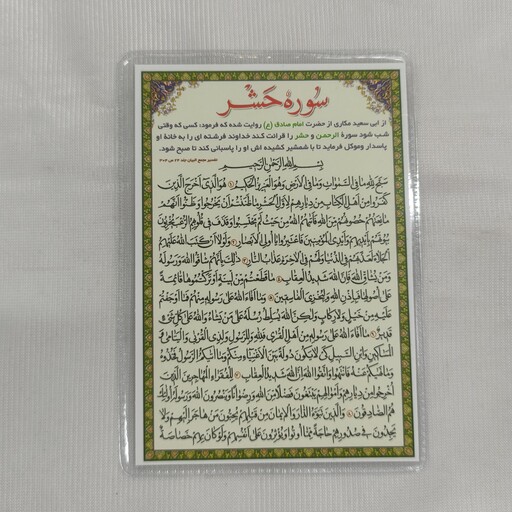 سورهٔ حَشر
از ابی سعید مکاری از حضرت امام صادق (ع) روایت شده که فرمود: کسی که وقتی
شب شود سورهٔ الرحمن و حشر را قرائت کند خداوند فرشته ای را به خانهٔ او
پاسدار وموکل فرماید تا با شمشیر کشیده اش او را پاسبانی کند تا صبح شود.
بسم الله الرحمن الرحیم
سَبَّحَ لِلَّهِ مَا فِی السَّمٰوَاتِ وَمَا فِی الْأَرْضِ وَهُوَ الْعَزِیزُ الْحَکِیمُ هُوَ الَّذِی أَخْرَجَ الَّذِینَ
کَفَرُوا مِنْ أَهْلِ الْکِتَابِ مِنْ دِیَارِهِمْ لِأَوَّلِ الْحَشْرِ مَا ظَنَنْتُمْ أَنْ یَخْرُجُوا وَظَنُّوا أَنَّهُمْ
مَانِعَتُهُمْ حُصُونُهُمْ مِنَ اللَّهِ فَأَتَاهُمُ اللَّهُ مِنْ حَیْثُ لَمْ یَحْتَسِبُوا وَقَذَفَ فِی قُلُوبِهِمُ الرُّعْبَ یُخْرِبُونَ
بُیُوتَهُمْ بِأَیْدِیهِمْ وَأَیْدِی الْمُؤْمِنِینَ فَاعْتَبِرُوا یَا أُولِی الْأَبْصَارِ وَلَوْلَا أَنْ کَتَبَ اللَّهُ عَلَیْهِمُ
الْجَلَاءَ لَعَذَّبَهُمْ فِی الدُّنْیَا وَلَهُمْ فِی الْآخِرَةِ عَذَابُ النَّارِ ذٰلِکَ بِأَنَّهُمْ شَاقُّوا اللَّهَ وَرَسُولَهُ
وَمَنْ یُشَاقِّ اللَّهَ فَإِنَّ اللَّهَ شَدِیدُ الْعِقَابِ مَا قَطَعْتُمْ مِنْ لِینَةٍ أَوْ تَرَکْتُمُوهَا قَائِمَةً
عَلَی أُصُولِهَا فَبِإِذْنِ اللَّهِ وَلِیُخْزِیَ الْفَاسِقِینَ وَمَا أَفَاءَ اللَّهُ عَلَی رَسُولِهِ مِنْهُمْ فَمَا أَوْجَفْتُمْ
عَلَیْهِ مِنْ خَیْلٍ وَلَا رِکَابٍ وَلٰکِنَّ اللَّهَ یُسَلِّطُ رُسُلَهُ عَلَی مَنْ یَشَاءُ وَاللَّهُ عَلَی کُلِّ شَیْءٍ
قَدِیرٌ مَا أَفَاءَ اللَّهُ عَلَی رَسُولِهِ مِنْ أَهْلِ الْقُرَی فَلِلَّهِ وَلِلرَّسُولِ وَلِذِی الْقُرْبَی وَالْیَتَامَی وَ
الْمَسَاکِینِ وَابْنِ السَّبِیلِ کَیْ لَا یَکُونَ دُولَةً بَیْنَ الْأَغْنِیَاءِ مِنْکُمْ وَمَا آتَاکُمُ الرَّسُولُ فَخُذُوهُ
وَمَا نَهَاکُمْ عَنْهُ فَانْتَهُوا وَاتَّقُوا اللَّهَ إِنَّ اللَّهَ شَدِیدُ الْعِقَابِ لِلْفُقَرَاءِ الْمُهَاجِرِینَ الَّذِینَ
أُخْرِجُوا مِنْ دِیَارِهِمْ وَأَمْوَالِهِمْ یَبْتَغُونَ فَضْلًا مِنَ اللَّهِ وَرِضْوَانًا وَیَنْصُرُونَ اللَّهَ وَرَسُولَهُ أُولٰئِکَ
هُمُ الصَّادِقُونَ وَالَّذِینَ تَبَوَّءُوا الدَّارَ وَالْإِیمَانَ مِنْ قَبْلِهِمْ یُحِبُّونَ مَنْ هَاجَرَ إِلَیْهِمْ وَلَا
یَجِدُونَ فِی صُدُورِهِمْ حَاجَةً مِمَّا أُوتُوا وَیُؤْثِرُونَ عَلَی أَنْفُسِهِمْ وَلَوْ کَانَ بِهِمْ خَصَاصَةٌ